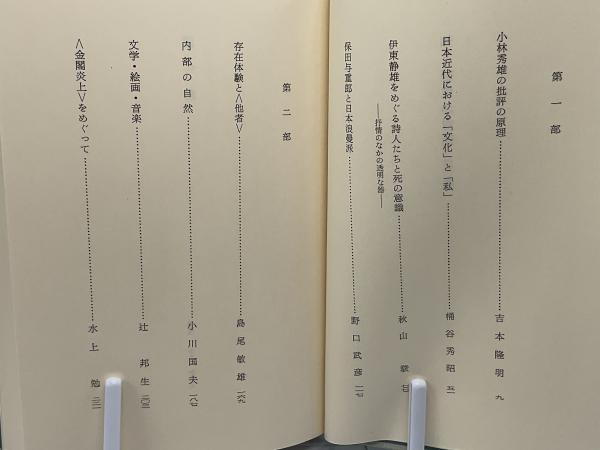 第一部
小林秀雄の批評の原理……吉本隆明 九
日本近代における「文化」と「私」……桶谷秀昭 五一
伊東静雄をめぐる詩人たちと死の意識
――抒情のなかの透明な骼――……秋山 駿 七七
保田与重郎と日本浪曼派……野口武彦 一一七
第二部
存在体験と〈他者〉……島尾敏雄 一六九
内部の自然……小川国夫 一八七
文学・絵画・音楽……辻 邦生 二〇三
〈金閣炎上〉をめぐって……水上 勉 二二一